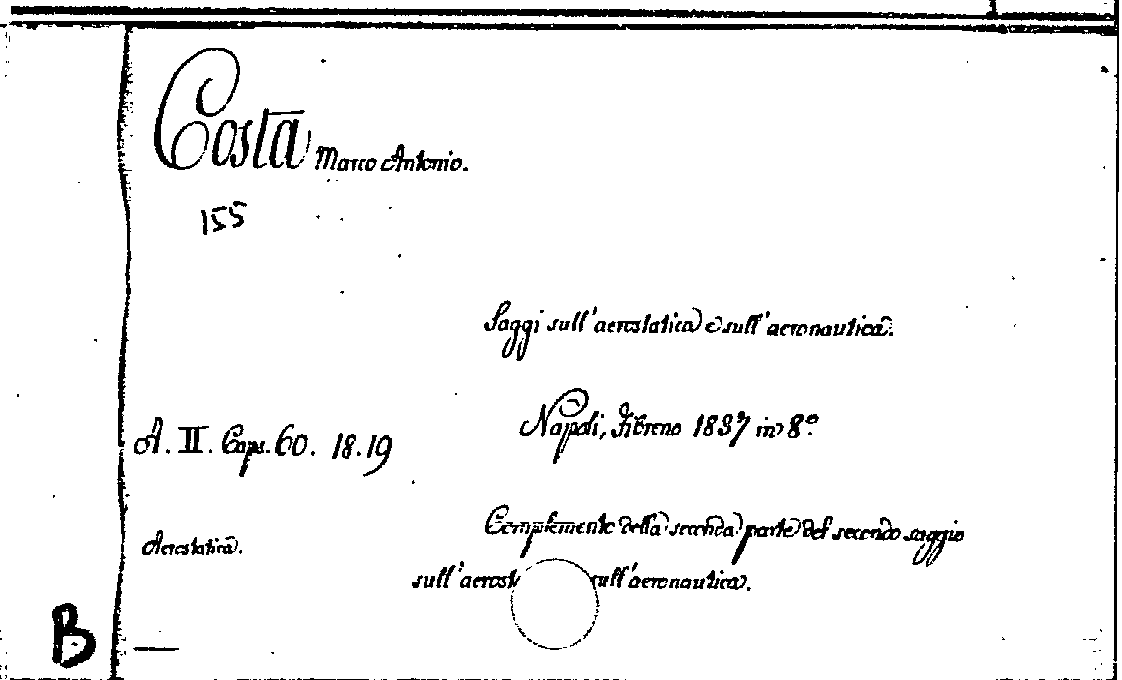 Costa Marco Antonio.
155
Saggi sull'aerostatica e sull'aeronautica.
Napoli, Fibreno 1837 in 8º
A. II. Caps. 60. 18.19
Complemento della seconda parte del secondo saggio
Aerostatica.
sull'aerost sull'aeronautica.
B